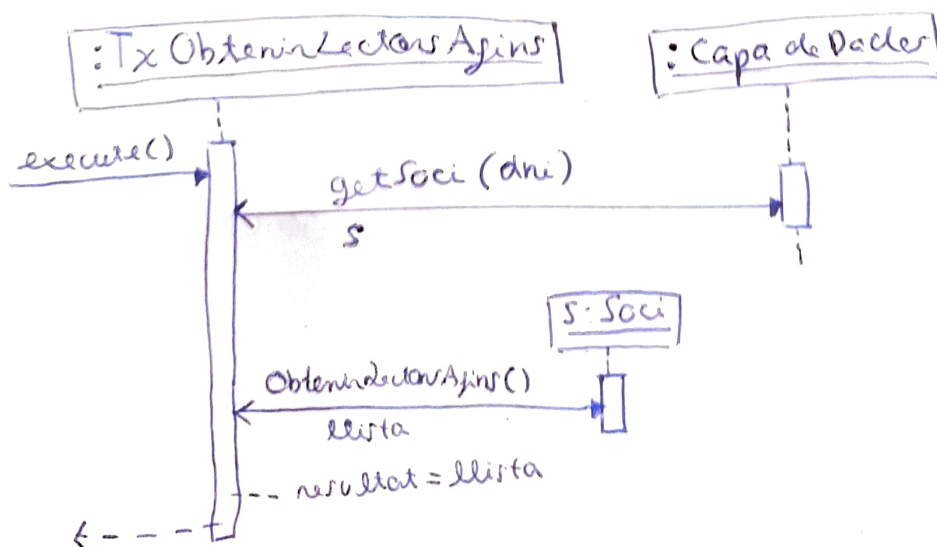 :TxObtenirLectorsAfins
:CapadeDades
execute()
getSoci(dni)
s
s:Soci
ObtenirLectorsAfins()
llista
resultat = llista